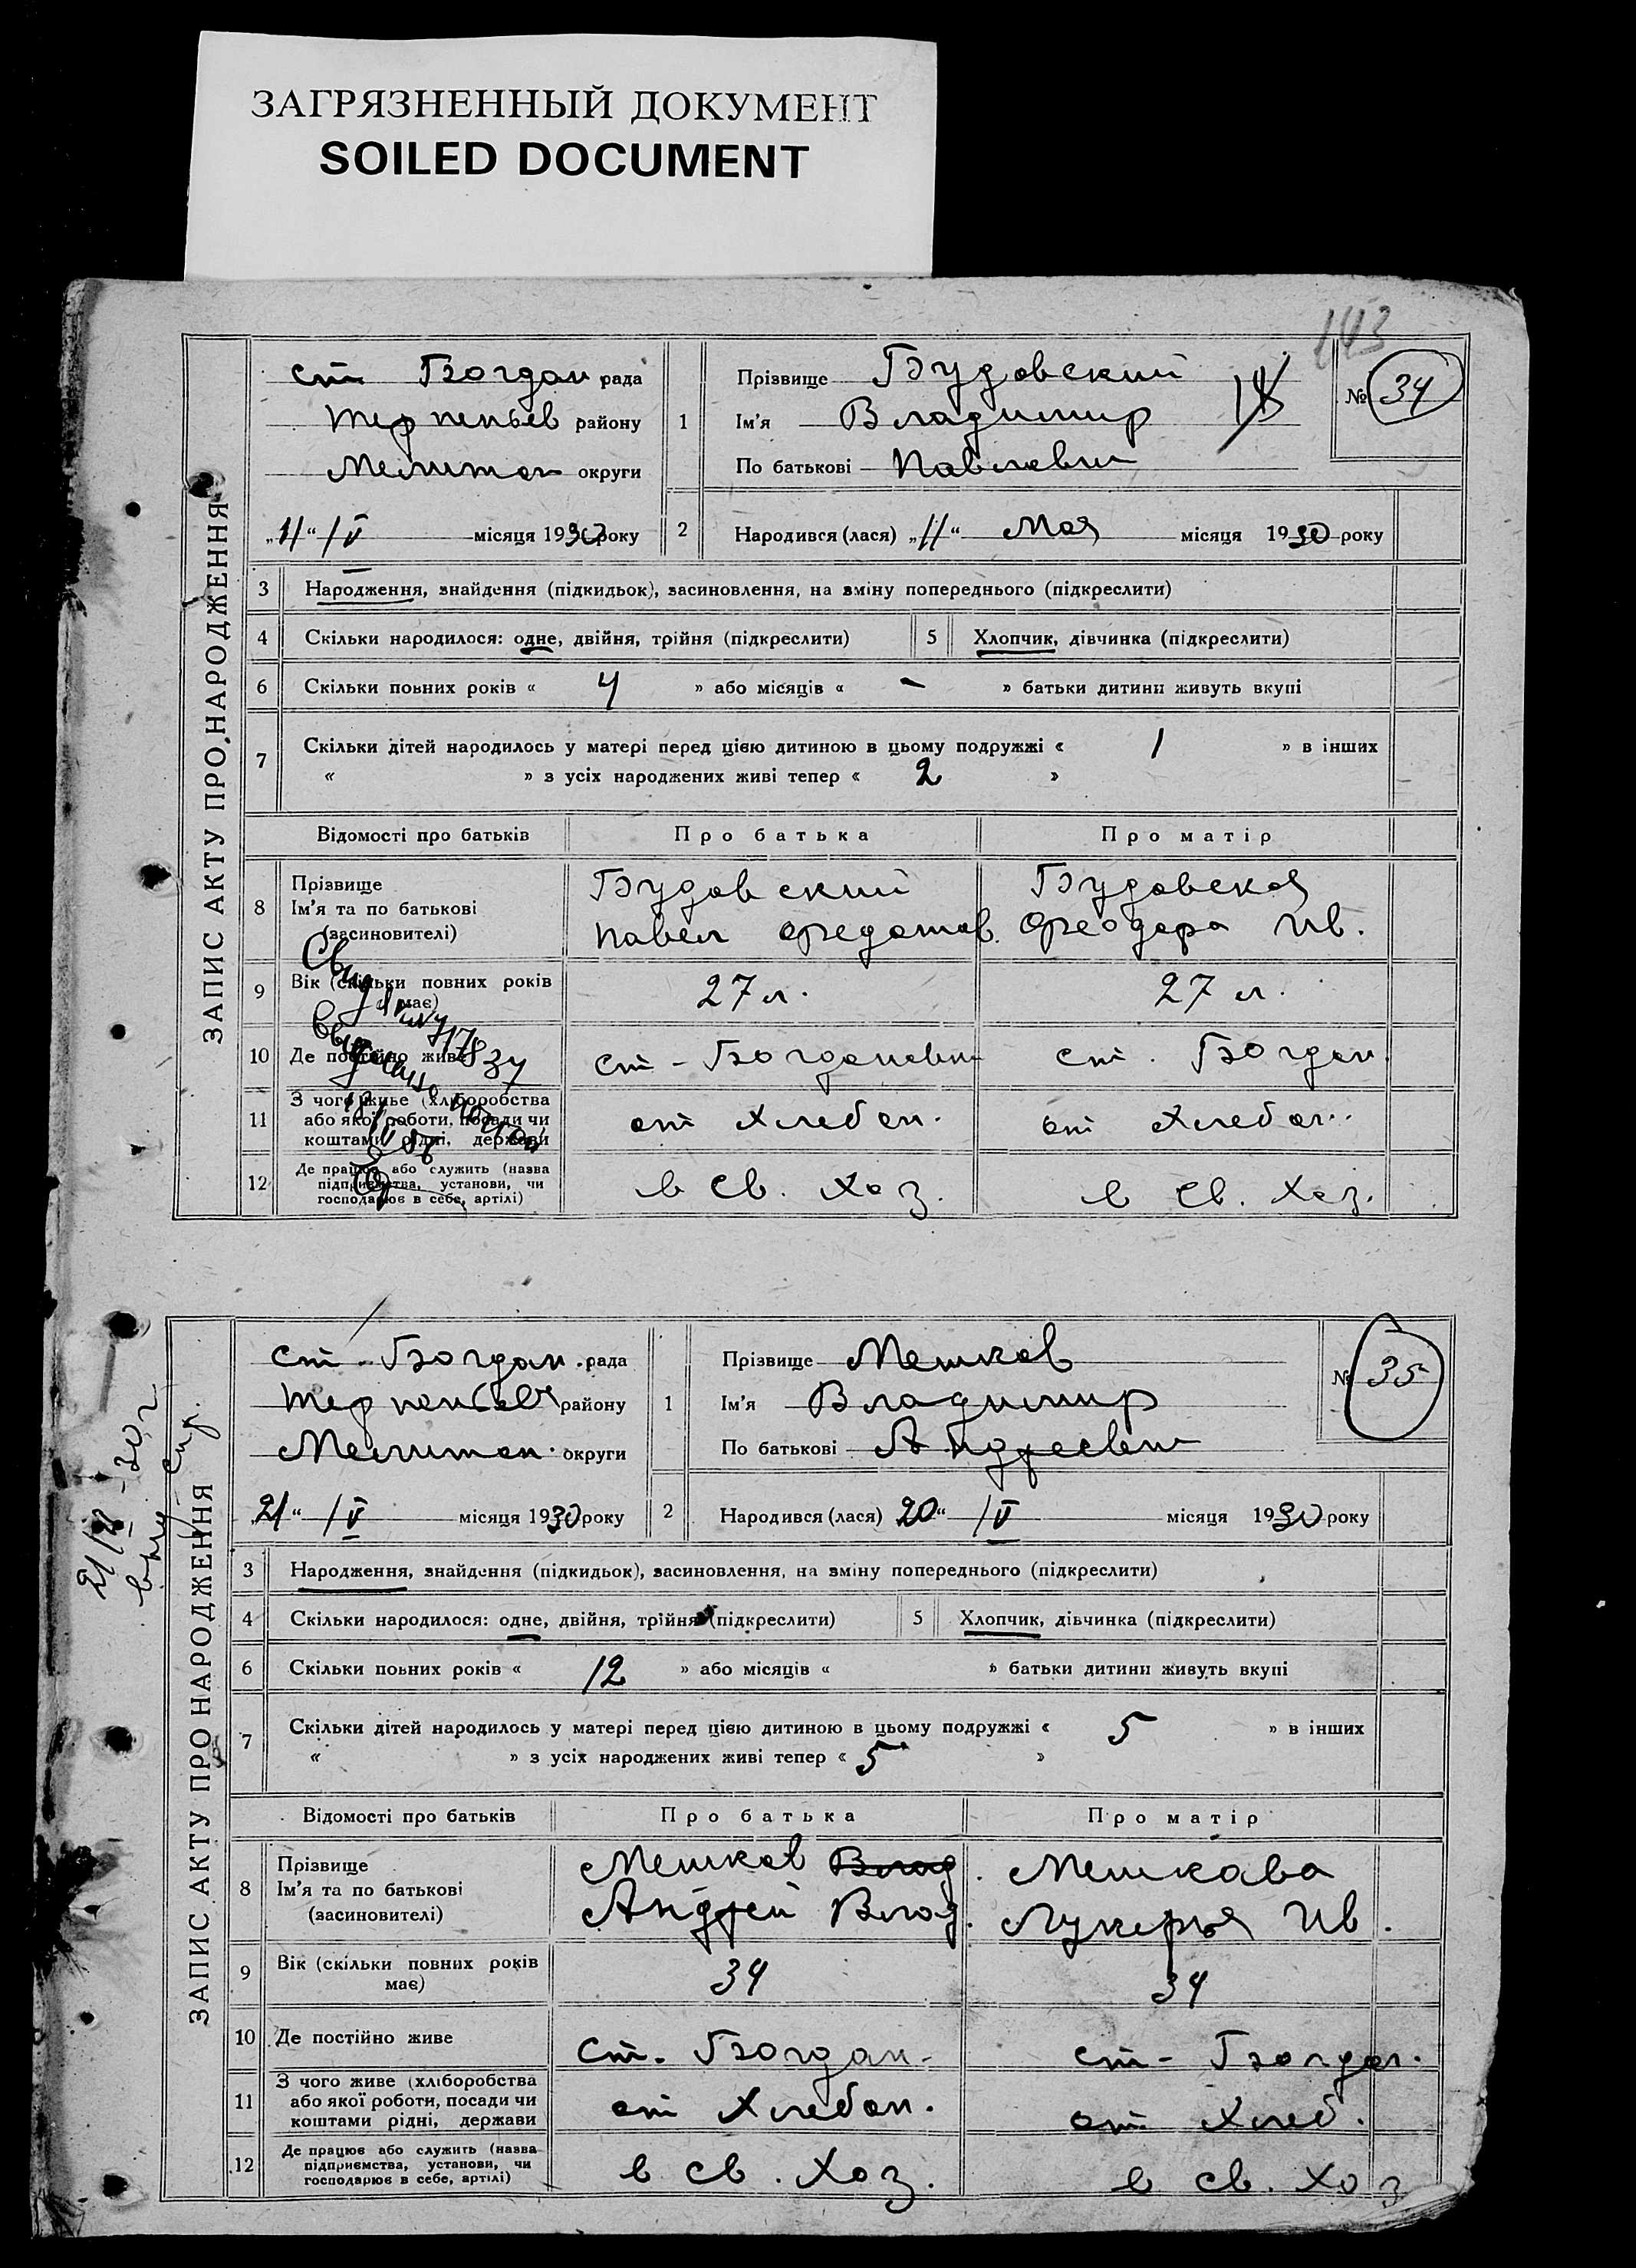 ЗАГРЯЗНЕННЫЙ ДОКУМЕНТ
SOILED DOCUMENT
143
ЗАПИС АКТУ ПРО НАРОДЖЕННЯ
ст Богдан рада
Терпеньев району
Мелитоп округи
„11“ IV місяця 1930 року
1
Прізвище Будовский
Ім'я Владимир
По батькові Павлович
№ 34
2 Народився (лася) „11“ Мая місяця 1930 року
3 Народження, знайдення (підкидьок), засиновлення, на зміну попереднього (підкреслити)
4 Скільки народилося: одне, двійня, трійня (підкреслити) 5 Хлопчик, дівчинка (підкреслити)
6 Скільки повних років « 4 » або місяців « - » батьки дитини живуть вкупі
7 Скільки дітей народилось у матері перед цією дитиною в цьому подружжі « 1 » в інших
« » з усіх народжених живі тепер « 2 »
Відомості про батьків Про батька Про матір
8 Прізвище
Ім'я та по батькові
(засиновителі)
Будовский
Павел Федотов.
Будовская
Феодора Ив.
9 Вік (скільки повних років
має)
27 л. 27 л.
10 Де постійно живе ст - Богданович ст. Богдан.
11 З чого живе (хліборобства
або якої роботи, посади чи
коштами рідні, держави
от Хлебоп. от Хлебоп.
12 Де працює або служить (назва
підприємства, установи, чи
господарює в себе, артілі)
в св. хоз. в св. хоз.
ЗАПИС АКТУ ПРО НАРОДЖЕННЯ
ст - Богдан. рада
району
Мелитоп. округи
„21“ IV місяця 1930 року
1
Прізвище Мешков
Ім'я Владимир
По батькові Андреевич
№ 35
2 Народився (лася) 20“ IV місяця 1930 року
3 Народження, знайдення (підкидьок), засиновлення, на зміну попереднього (підкреслити)
4 Скільки народилося: одне, двійня, трійня (підкреслити) 5 Хлопчик, дівчинка (підкреслити)
6 Скільки повних років « 12 » або місяців « » батьки дитини живуть вкупі
7 Скільки дітей народилось у матері перед цією дитиною в цьому подружжі « 5 » в інших
« » з усіх народжених живі тепер « 5 »
Відомості про батьків Про батька Про матір
8 Прізвище
Ім'я та по батькові
(засиновителі)
Мешков Влад.
Андрей Влад.
Мешкова
Лукерья Ив.
9 Вік (скільки повних років
має)
34 34
10 Де постійно живе ст. Богдан. ст - Богдан.
11 З чого живе (хліборобства
або якої роботи, посади чи
коштами рідні, держави
от Хлебоп. от Хлеб.
12 Де працює або служить (назва
підприємства, установи, чи
господарює в себе, артілі)
в св. хоз. в св. хоз